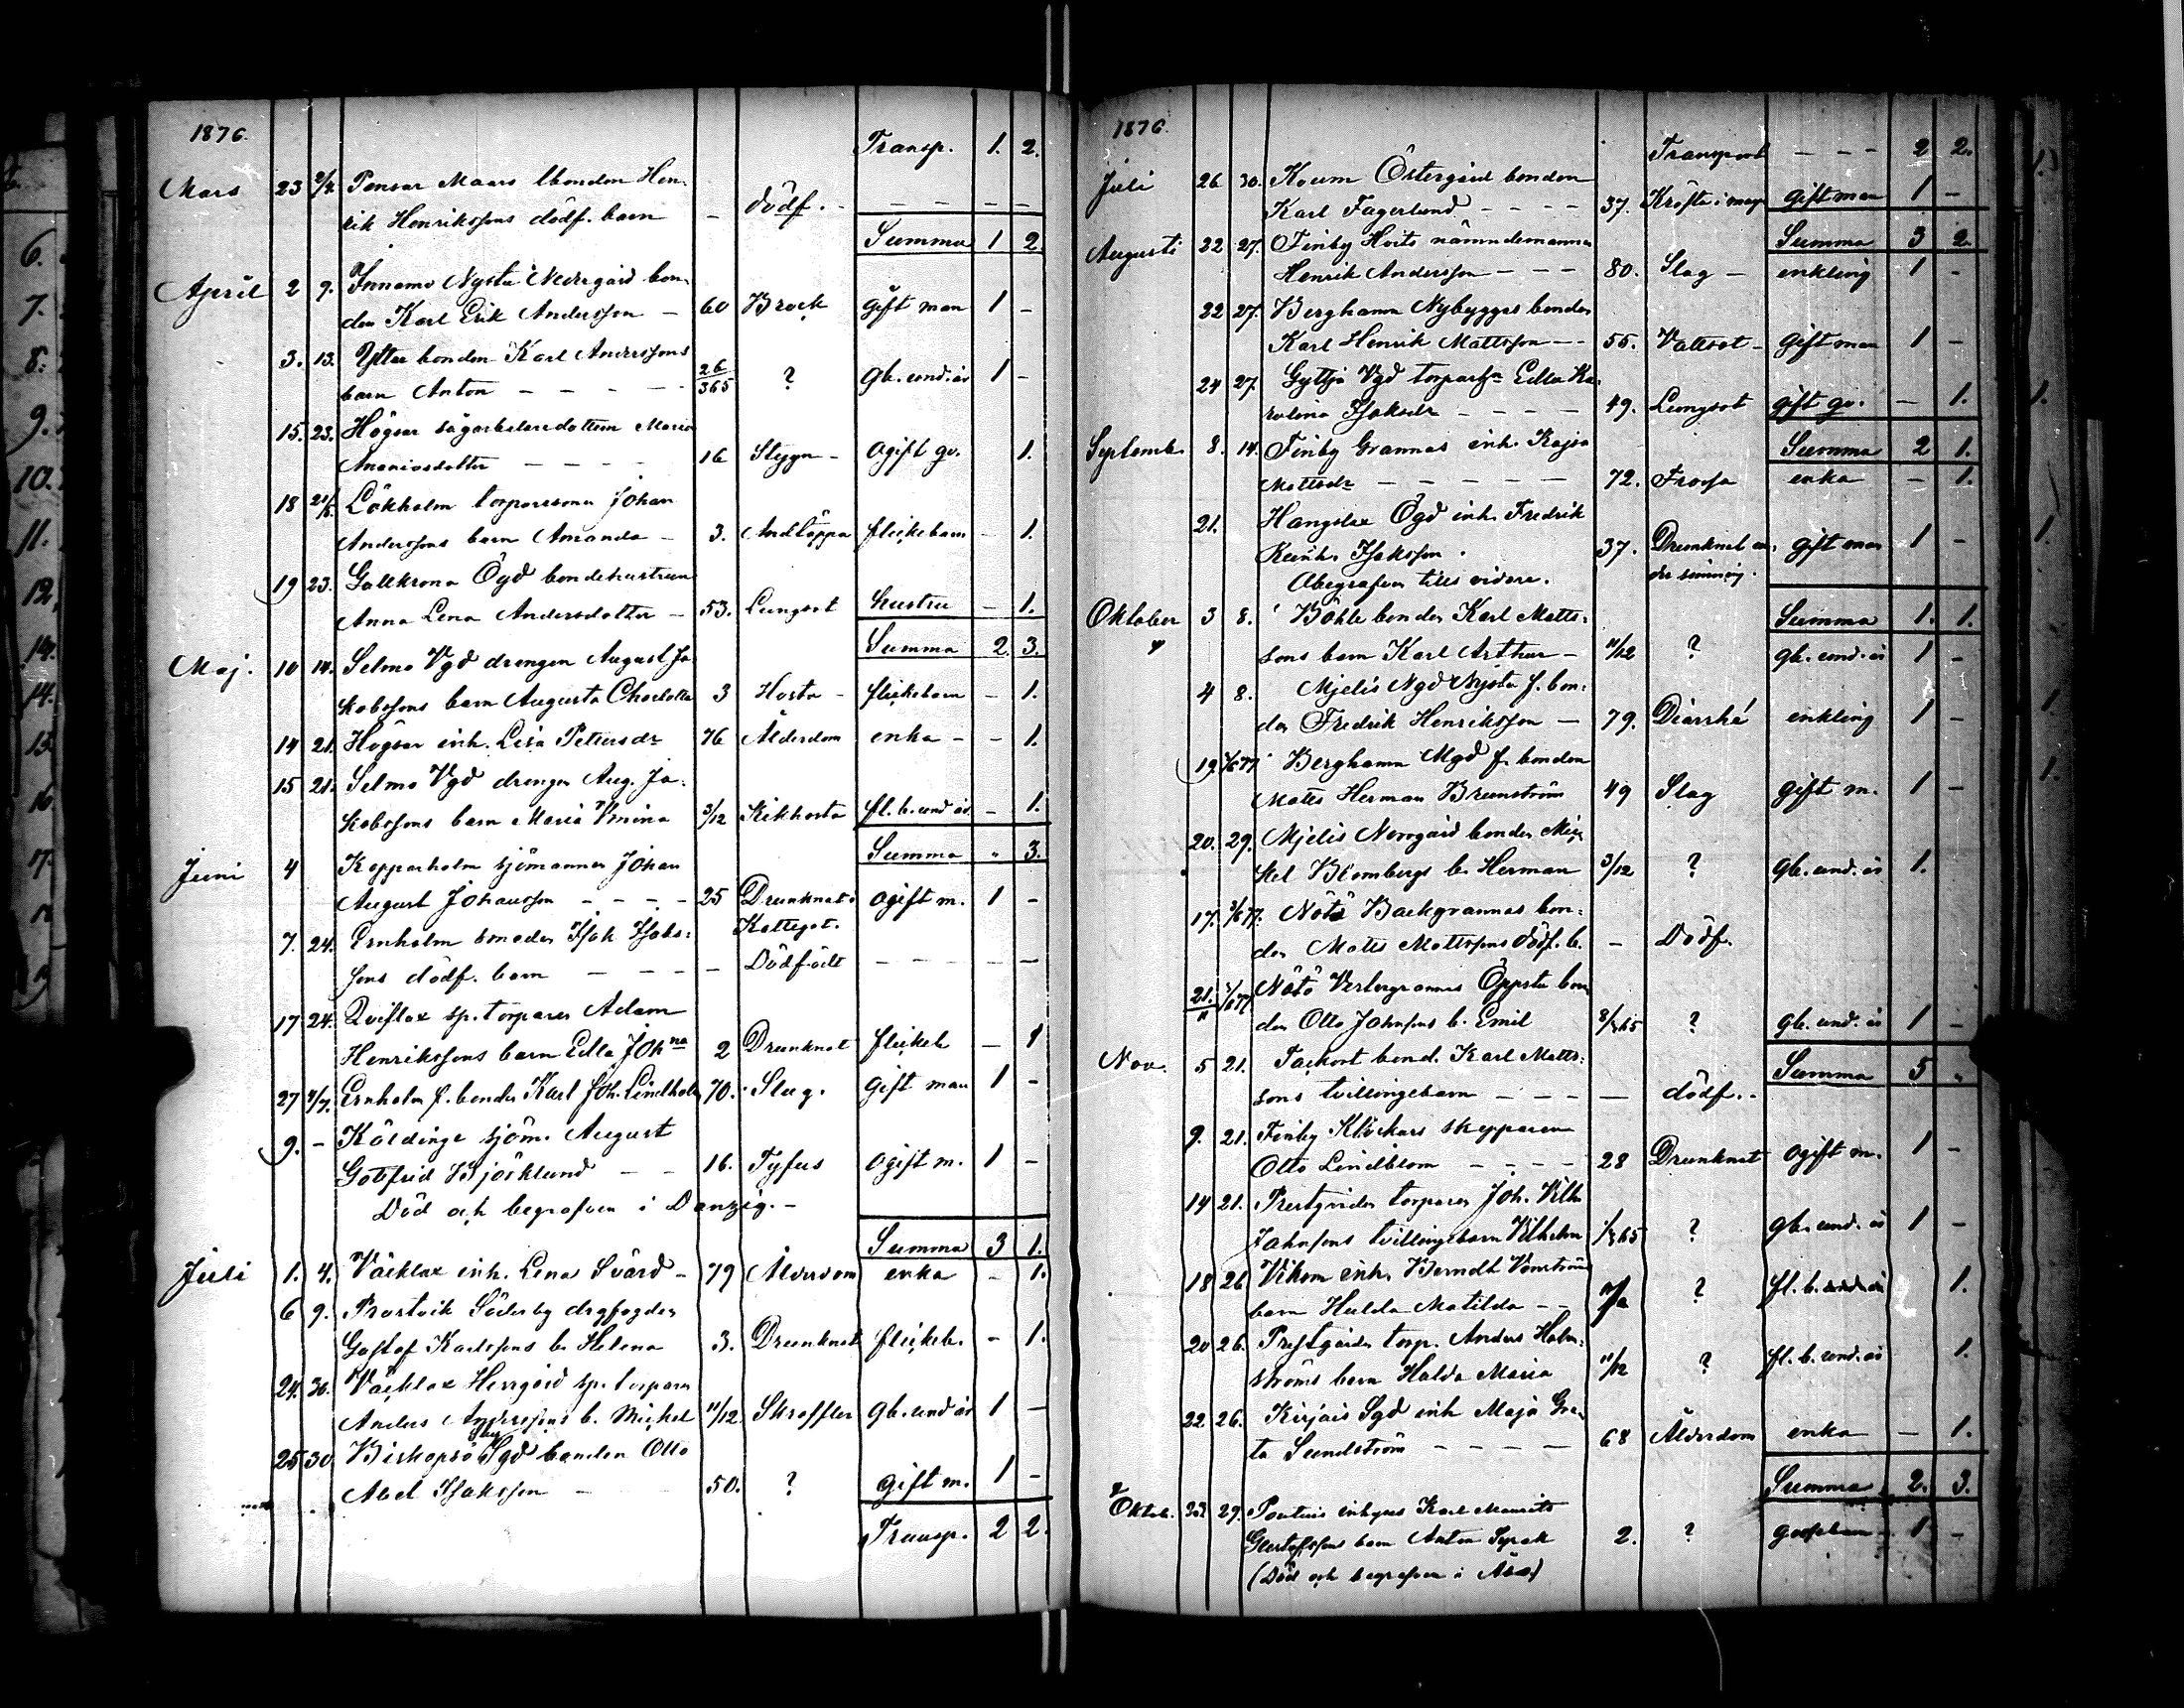 1876.
Transp. 1. 2.
Mars 23 2/4 Pensar Maars bonden Hen-
rik Henrikssons dödf. barn - dödf. - - - - -
Summa 1 2.
April 2 9. Innamo Nysta Nedergård bon-
den Karl Erik Andersson - 60 Brock gift man 1 -
3. 13. Ytter bonden Karl Anderssons
barn Anton - - - - 26/365 ? gb. und. år 1 -
15. 23. Högsar sågarbetaredottern Maria
Ananiasdotter - - - - 16 Styng - ogift qv. 1.
18 21/5 Lökholm torparesonen Johan
Anderssons barn Amanda - 3. Andtäppa flickebarn - 1.
19 23. Gullkrona Ögd bondehustrun
Anna Lena Andersdotter - 53. Lungsot hustru - 1.
Summa 2. 3.
Maj. 10 14. Selmo Vgd drengen August Ja-
kobssons barn Augusta Charlotta 3 Hosta - flickebarn - 1.
14 21. Högsar inh. Lisa Petersdr 76 Ålderdom enka - - 1.
15 21. Selmo Vgd drengen Aug. Ja-
kobssons barn Maria Vmina 3/12 Kikhosta fl. b. und år - 1.
Summa " 3.
Juni 4 Kopparholm sjömannen Johan
August Johansson - - - - 25 Drunknat i ogift m. 1 -
Kattegat.
7. 24. Ernholm bonden Isak Isaks-
sons dödf. barn - - - - Dödfödt - - - - -
17 24. Qviflax sp. torparen Adam
Henrikssons barn Edla Johna 2 Drunknat flickeb - 1
27 4/7. Ernholm f. bonden Karl Joh. Lindholm 70. Slag. gift man 1 -
9. - Köldinge sjöm. August
Gottfrid Björklund - - 16. Tyfus ogift m. 1 -
Död och begrafven i Danzig. -
Summa 3 1.
Juli 1. 4. Väcklax inh. Lena Svärd - 79 Ålderdom enka - 1.
6 9. Prostvik Söderby drgfogden
Gustaf Karlssons b. Helena 3. Drunknat flickeb. - 1.
24. 30. Väcklax Herrgård sp. torparen
Anders Anderssons b. Michel 11/12 Skroffler gb. und år 1 -
25 30. Biskopsö Sgd bonden Otto
Abel Isaksson - 50. ? gift m. 1 -
Transp. 2 2.
1876.
Transport - - - 2 2.
Juli 26 30. Koum Östergård bonden
Karl Fagerlund - - - - 37. Kräfta i mage gift man 1 -
Summa 3 2.
Augusti 22 27. Finby Hoits nämndemannen
Henrik Andersson - - - 80. Slag - enkling 1 -
22 27. Berghamn Nybygges bonden
Karl Henrik Mattsson - - 55. Vattsot - gift man 1 -
24 27. Gyttja Vgd Edla Ka-
rolina Isaksdr - - - - 49. Lungsot gift qv. - 1.
Summa 2 1.
Septemb. 8. 14. Finby Grannas inh. Kajsa
Mattsdr - - - - - 72. Frossa enka - 1.
21. Hangslax Ögd inh. Fredrik
Isaksson. 37. Drunknat un- gift man 1 -
Obegrafven tills vidare. der simning.
Summa 1. 1.
Oktober 3 8. Böhle bonden Karl Matts-
sons barn Karl Arthur - 11/12 ? gb. und. år 1 -
4 8. Mjelis Ngd Nysta f. bon-
den Fredrik Henriksson - 79. Diarrhé enkling 1 -
19. Berghamn Mgd f. bonden
Matts Herman Brunström 49 Slag gift m. 1 -
20. 29. Mjelis Norrgård bonden Mic-
kel Blombergs b. Herman 3/12 ? gb. und. år 1.
17. 3/6 77. Nötö Backgrannas bon-
den Matts Mattssons dödf. b. - Dödf.
21./11 Nötö Vestergrannas Öppsta bon-
den Otto Johnsons b. Emil 8/365 ? gb. und. år 1 -
Summa 5 "
Nov. 5 21. Tackort bond. Karl Matts-
sons tvillingebarn - - - - dödf. -
9. 21. Finby Klockars skepparen
Otto Lindblom - - - - 28 Drunknat ogift m. 1 -
14 21. torparen Joh. Vilh
Johnsons tvillingebarn Vilhelm 1/365 ? gb. und. år 1 -
18 26 Vikom inh. Berndt
barn Hulda Matilda - - ? fl. b. 1.
20 26. Prestgårds torp. Anders Holm-
ströms barn Hulda Maria 11/12 ? fl. b. und. år 1.
22. 26. Kirjais Sgd inh Maja Gre-
ta Sundström - - - - 68 Ålderdom enka - 1.
Summa 2. 3.
Oktob. 23. 29. Karl Maurits
Gustafssons barn Anton 2. ? gossebarn 1 -
(Död och begrafven i Åbo)